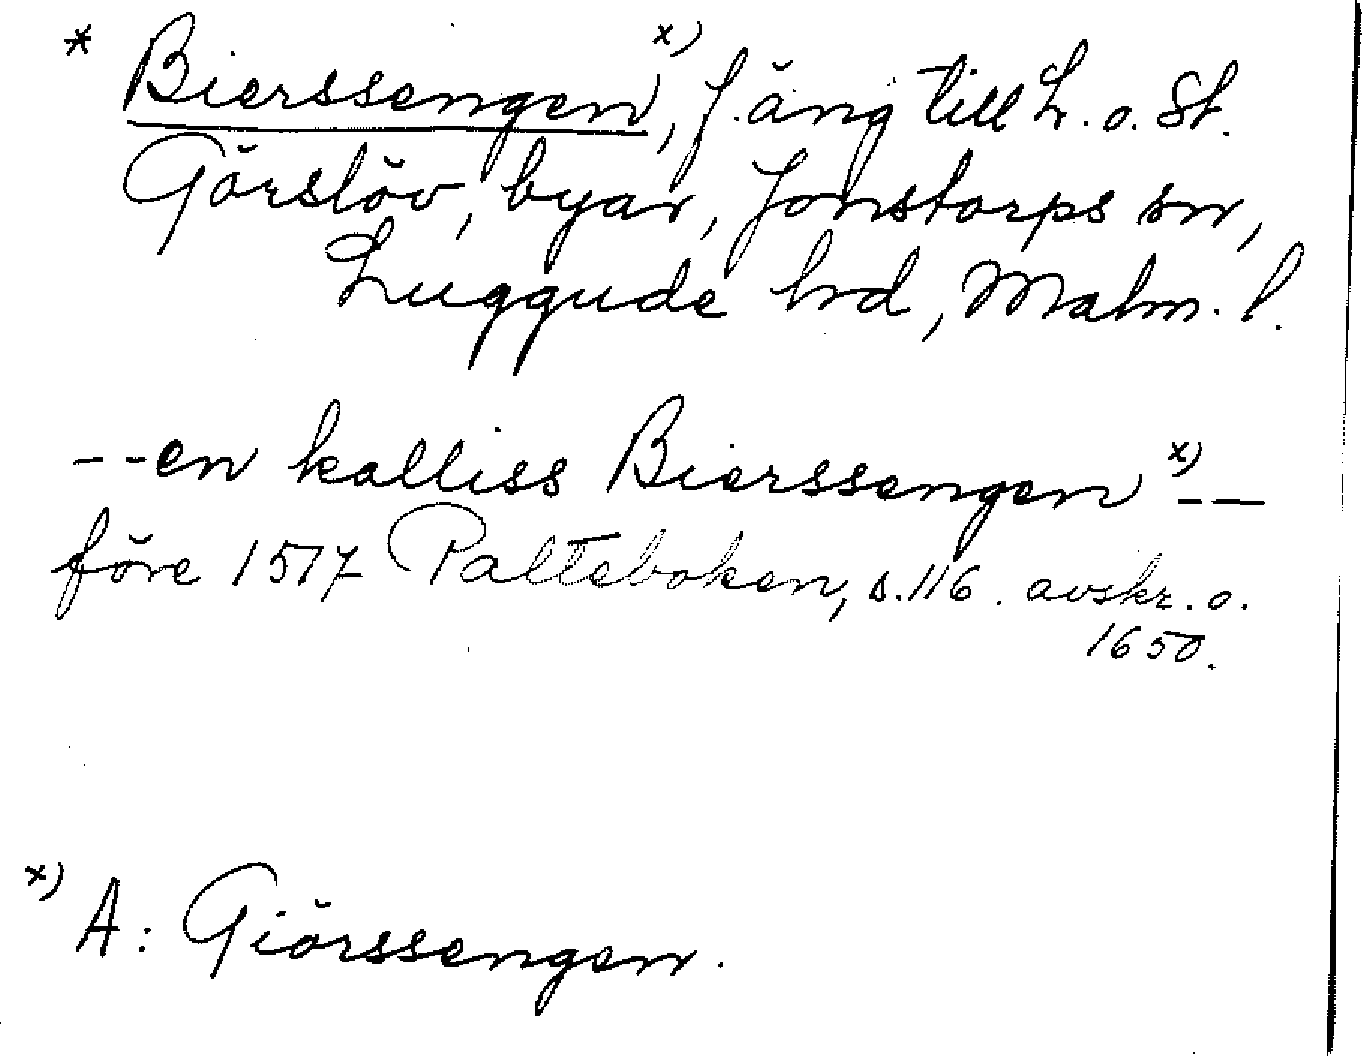 * Bierssengen x), f. äng till L. o. St.
Görslöv, byar, Jonstorps sn,
Luggude hd, Malm. l.
--en kalliss Bierssengen x)--
före 1517 Palteboken, s. 116. avskr. o.
1650.
x) A: Giörssengen.